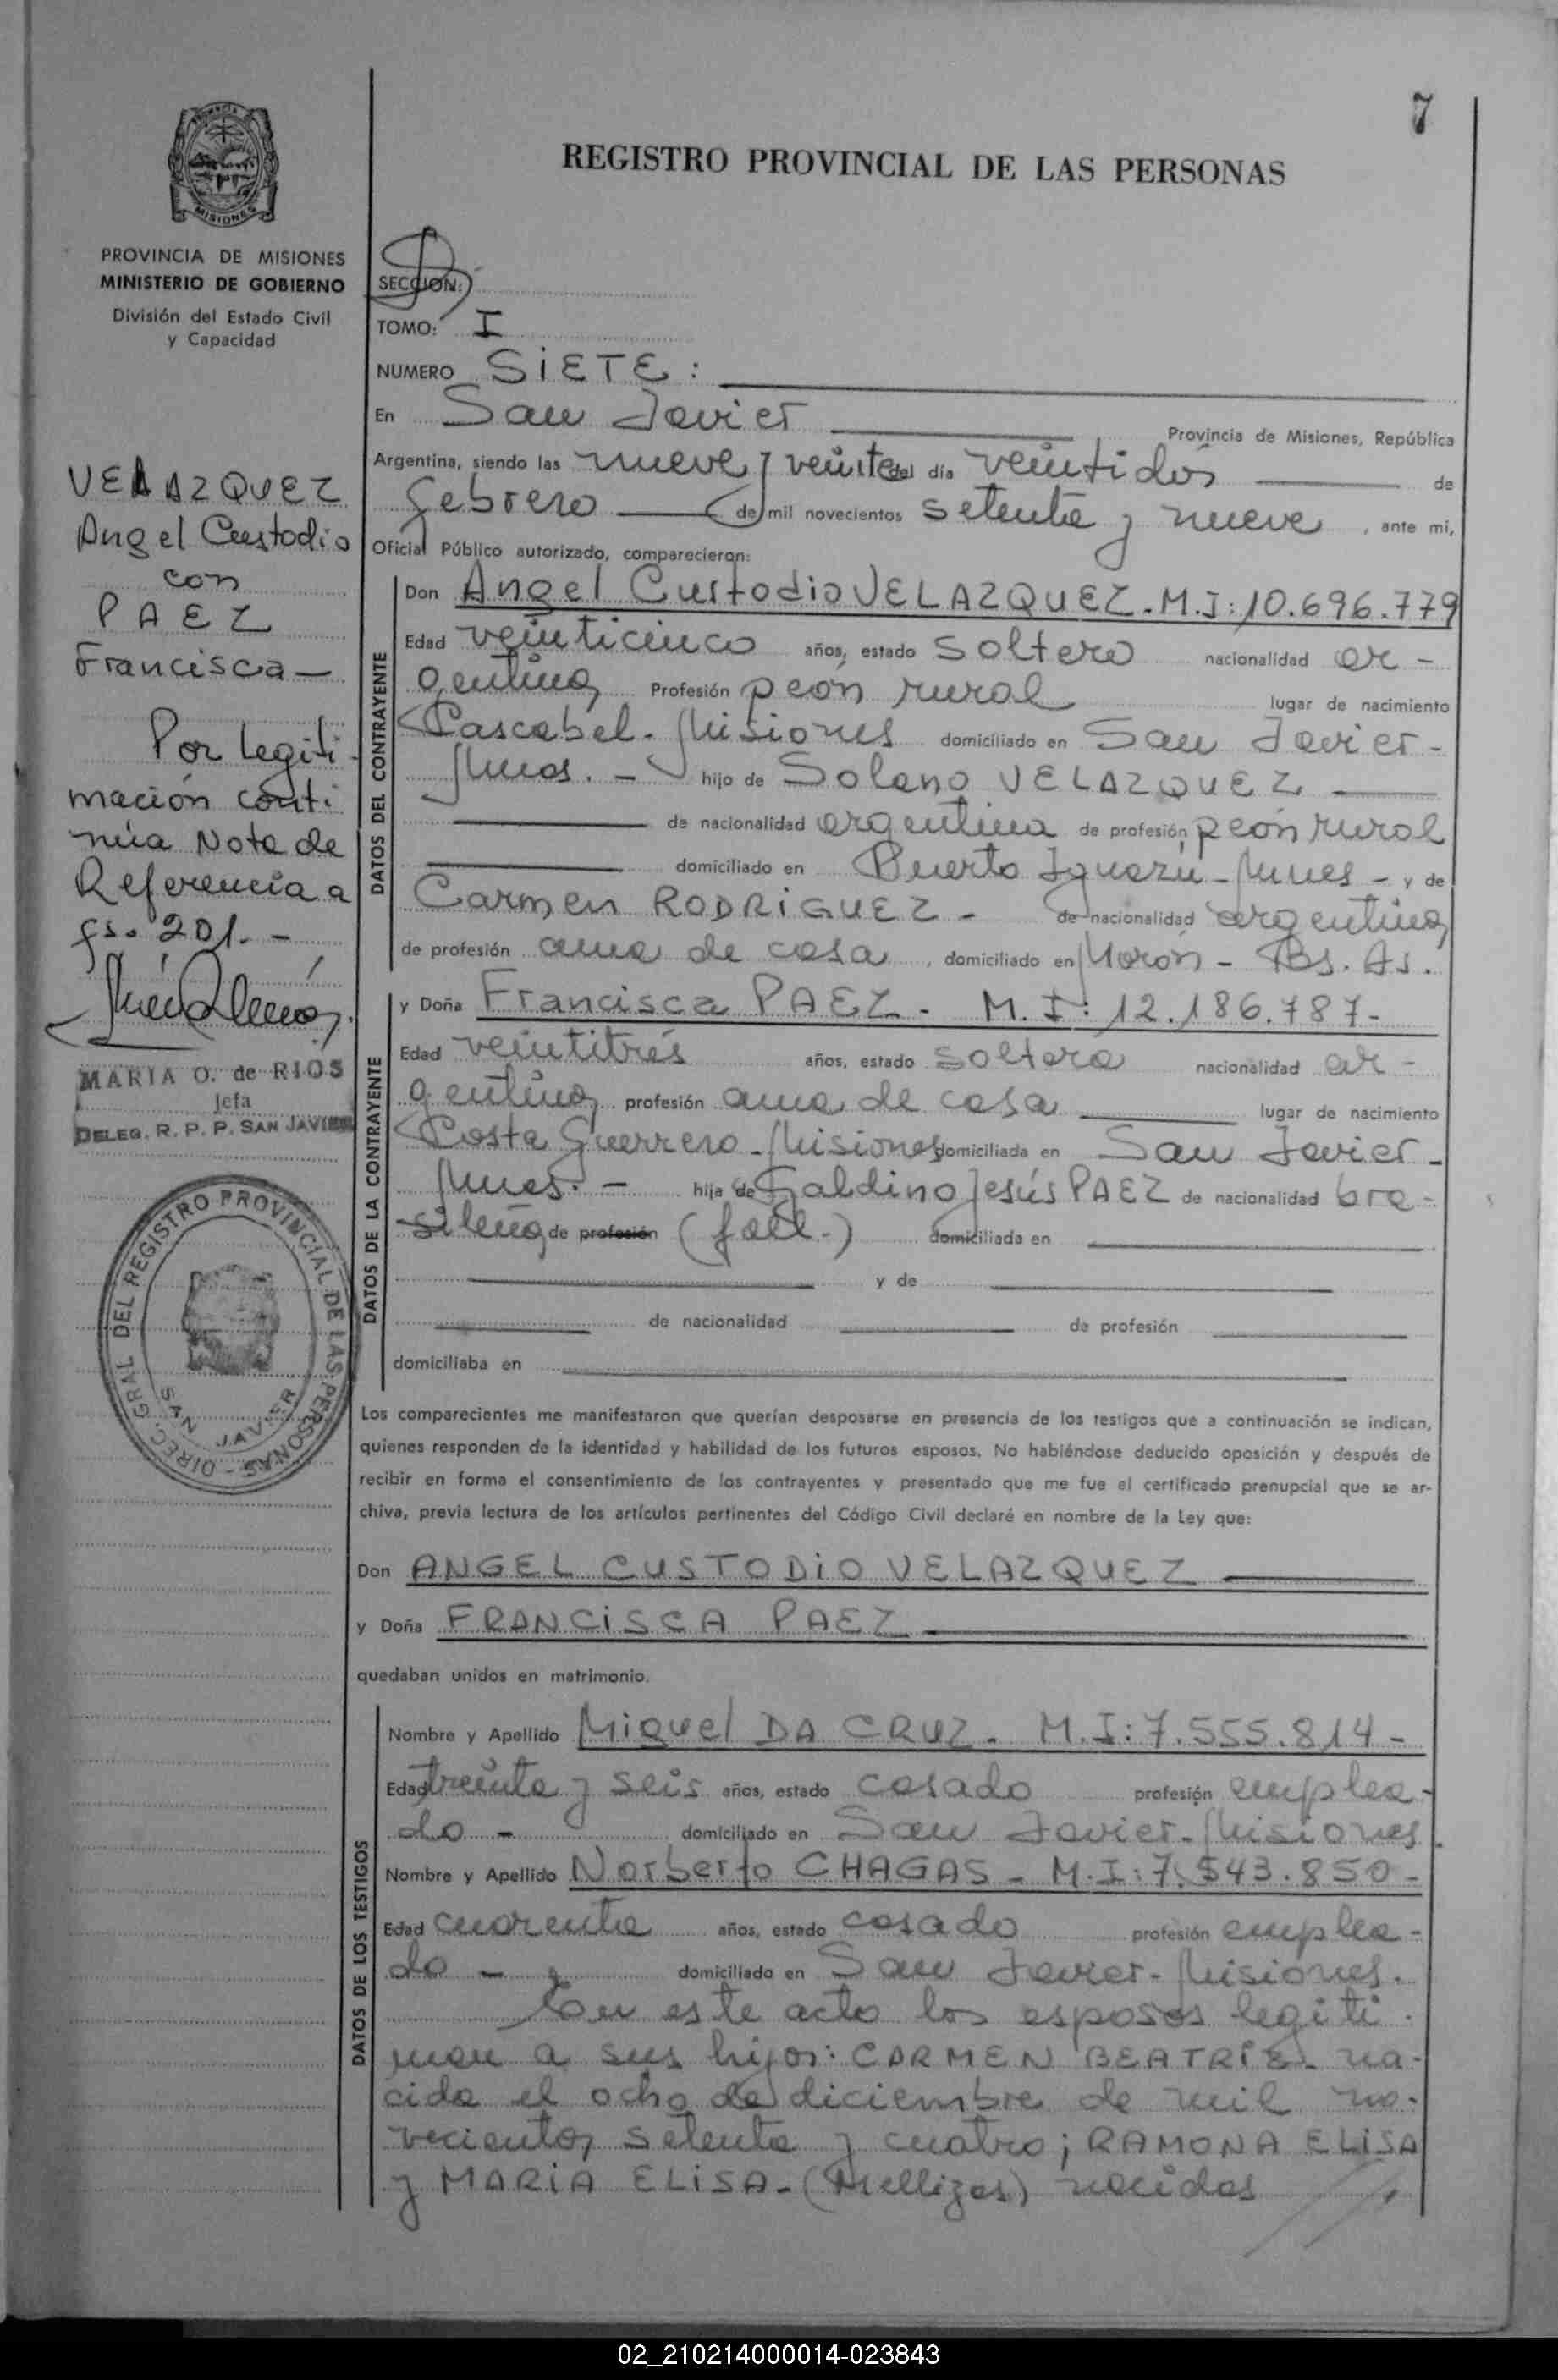 7
REGISTRO PROVINCIAL DE LAS PERSONAS
MISIONES
PROVINCIA DE MISIONES
MINISTERIO DE GOBIERNO
División del Estado Civil
y Capacidad
VELAZQUEZ
Angel Custodio
con
PAEZ
Francisca —
Por legiti-
mación conti-
núa Nota de
Referencia a
fs. 201. -
MARIA O. de RIOS
Jefa
DELEG. R. P. P. SAN JAVIER
DIREC. GRAL. DEL REGISTRO PROVINCIAL DE LAS PERSONAS -
SAN JAVIER
SECCION:
TOMO: I
NUMERO SiETE :
En San Javier Provincia de Misiones, República
Argentina, siendo las nueve y veinte del día veintidós de
febrero (de) mil novecientos setenta y nueve, ante mi,
Oficial Público autorizado, comparecieron:
DATOS DEL CONTRAYENTE
Don Angel Custodio VELAZQUEZ. M.I: 10.696.779
Edad veinticinco años, estado soltero nacionalidad ar-
gentina Profesión peón rural lugar de nacimiento
Pascabel. Misiones domiciliado en San Javier -
Mnes. - hijo de Solano VELAZQUEZ
de nacionalidad argentina de profesión peón rural
domiciliado en Puerto Iguazú - Mnes - y de
Carmen RODRiGUEZ - de nacionalidad argentina
de profesión ama de casa, domiciliado en Morón - Bs. As.
DATOS DE LA CONTRAYENTE
y Doña Francisca PAEZ. M.I: 12.186.787-
Edad veintitrés años, estado soltera nacionalidad ar-
gentina profesión ama de casa lugar de nacimiento
Costa Guerrero - Misiones domiciliada en San Javier -
Mnes. - hija de Galdino Jesús PAEZ de nacionalidad bra-
sileña de profesión (fall.) domiciliada en
y de
de nacionalidad de profesión
domiciliaba en
Los comparecientes me manifestaron que querían desposarse en presencia de los testigos que a continuación se indican,
quienes responden de la identidad y habilidad de los futuros esposos. No habiéndose deducido oposición y después de
recibir en forma el consentimiento de los contrayentes y presentado que me fue el certificado prenupcial que se ar-
chiva, previa lectura de los artículos pertinentes del Código Civil declaré en nombre de la Ley que:
Don ANGEL CUSTODiO VELAZQUEZ
y Doña FRANCiSCA PAEZ
quedaban unidos en matrimonio.
DATOS DE LOS TESTIGOS
Nombre y Apellido Miguel DA CRUZ. M.I: 7.555.814 -
Edad treinta y seis años, estado casado profesión emplea-
do - domiciliado en San Javier - Misiones.
Nombre y Apellido Norberto CHAGAS - M.I: 7.543.850 -
Edad cuarenta años, estado casado profesión emplea-
do - domiciliado en San Javier - Misiones.
Con este acto los esposos legiti-
man a sus hijos: CARMEN BEATRÍZ - na-
cida el ocho de diciembre de mil no-
vecientos setenta y cuatro; RAMONA ELiSA
y MARiA ELiSA - (Mellizas) nacidas //
02_210214000014-023843